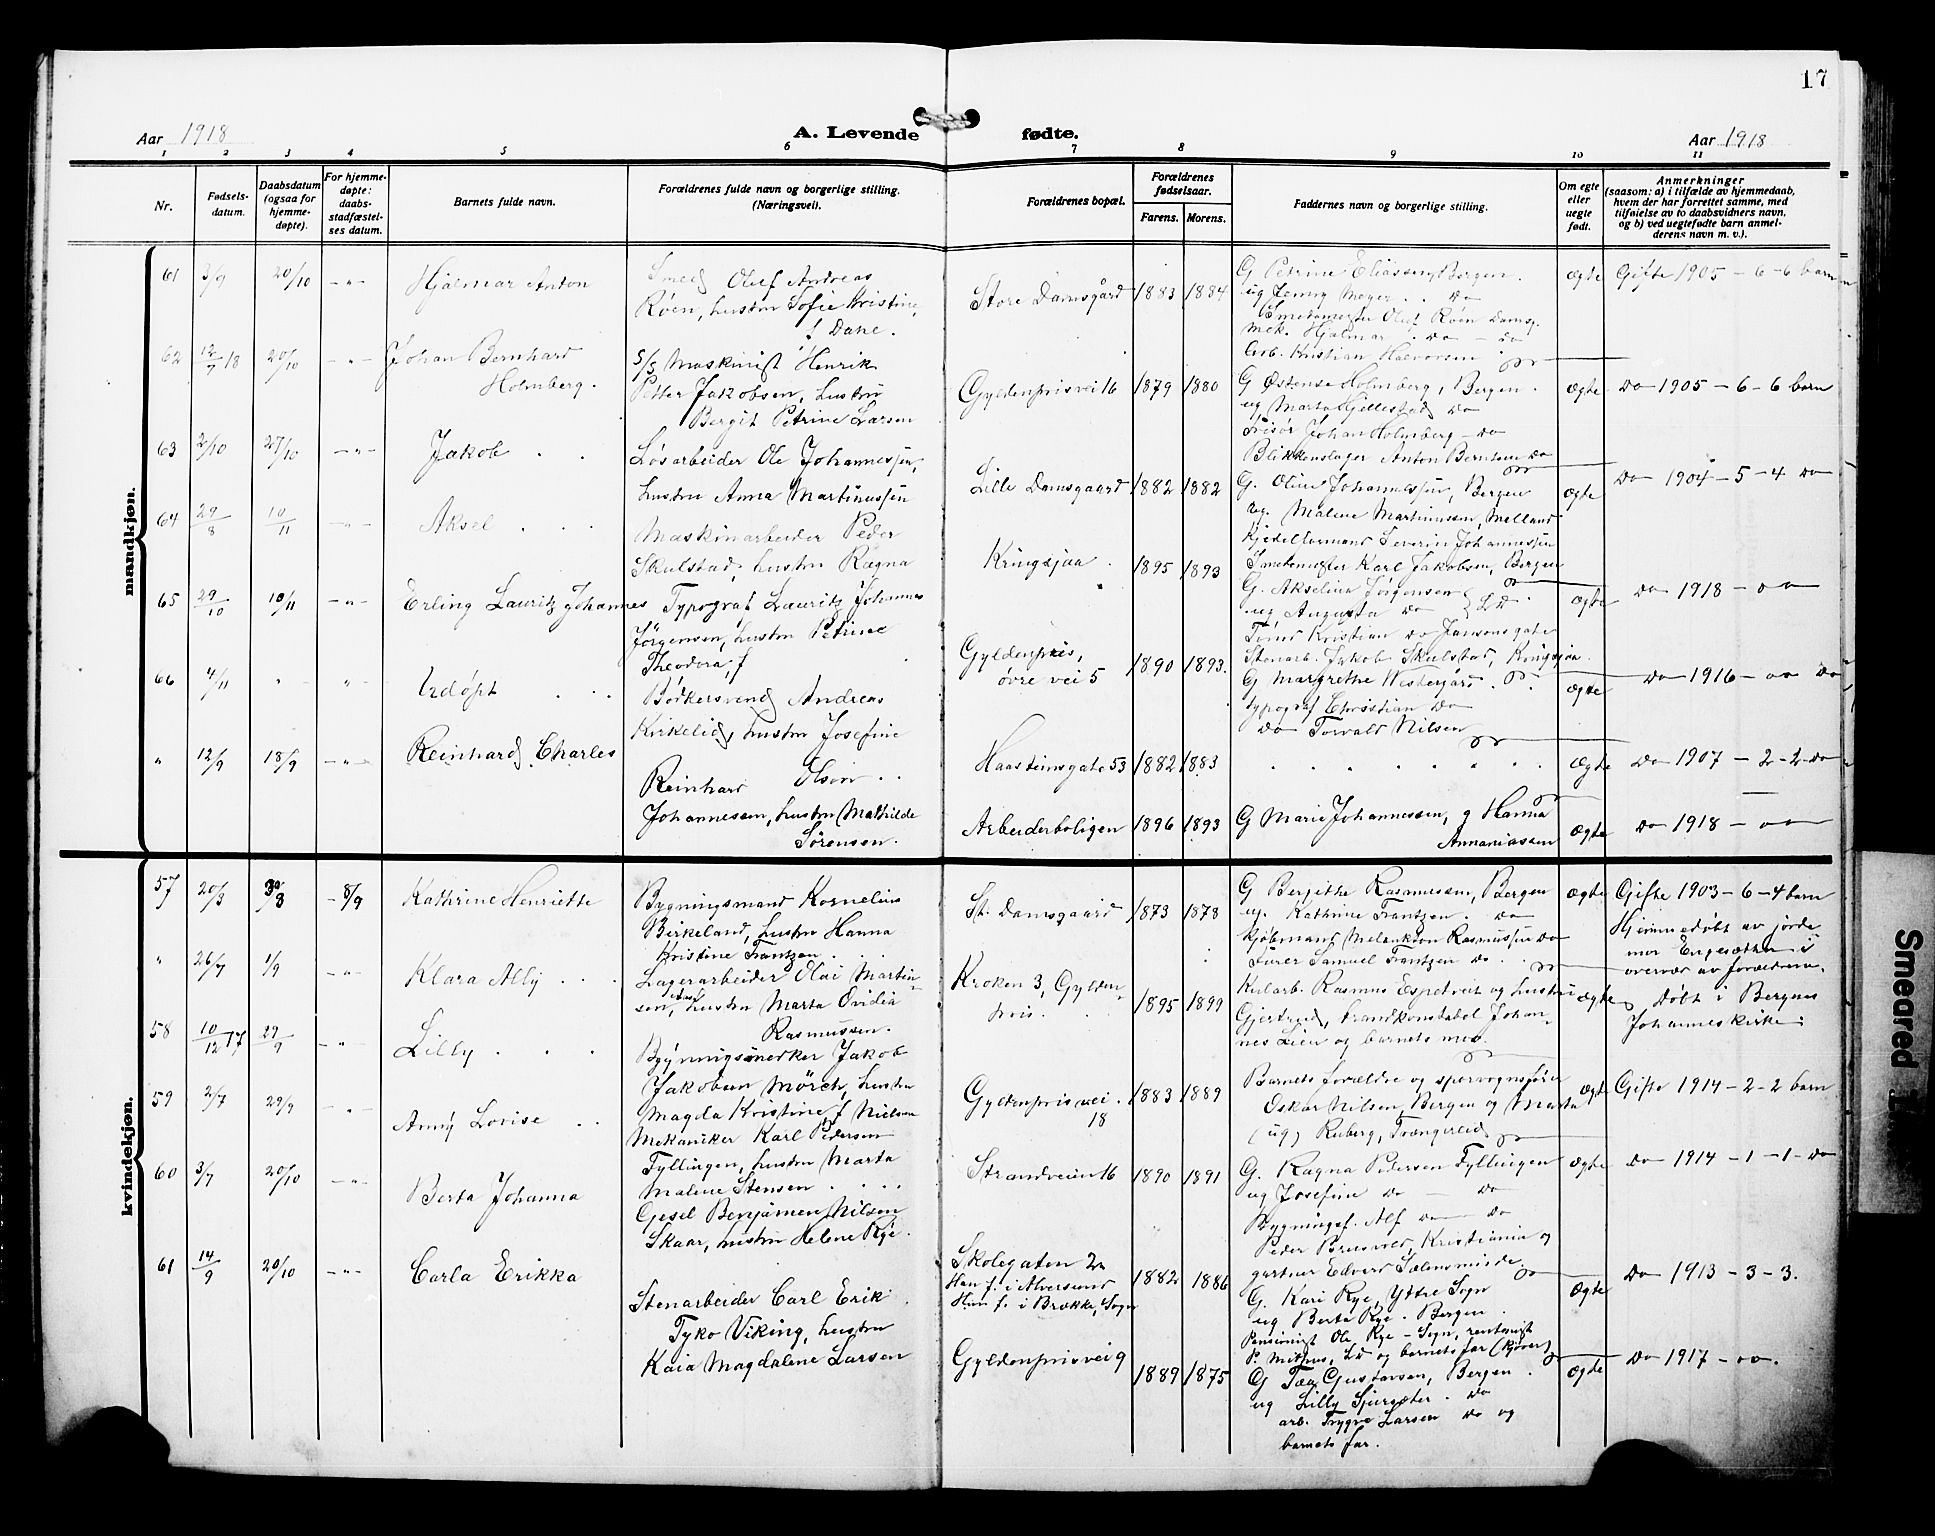 17
Aar 1918
A. Levende fødte.
Aar 1918
1 2 3 4 5 6 7 8 9 10 11
Nr.
Fødsels-
datum.
Daabsdatum
(ogsaa for
hjemme-
døpte).
For hjemme-
døpte:
daabs-
stadfæstel-
ses datum.
Barnets fulde navn.
Forældrenes fulde navn og borgerlige stilling.
(Næringsvei).
Forældrenes bopæl.
Forældrenes
fødselsaar.
Farens. Morens.
Faddernes navn og borgerlige stilling.
Om egte
eller
uegte
født.
Anmerkninger
(saasom: a) i tilfælde av hjemmedaab,
hvem der har forrettet samme, med
tilføielse av to daabsvidners navn,
og b) ved uegtefødte barn anmel-
derens navn m. v.).
mandkjøn.
61 3/9 20/10 - " - Hjalmar Anton
Smed Oluf Andreas
Røen, hustru Sofie Kristine,
f. Dane.
Store Damsgård 1883 1884
G Petrine Eliassen, Bergen.
ug Jenny Meyer . . Do
Smedemester Oluf Røen Damsg.
Mek. Hjalmar . Do - Do
Arb. Kristian Halvorsen
Ægte Gifte 1905 - 6 - 6 barn
62 12/7 18 20/10 - " - Johan Bernhard
Holmberg.
S/S Maskinist Henrik
Petter Jakobsen, hustru
Bergit Petrine Larsen
Gyldenprisvei 16 1879 1880
G Østense Holmberg, Bergen.
ug Marta Gjellestad Do
Frisør Johan Holmberg - Do
Blikkenslager Anton Berntsen Do
Ægte Do 1905 - 6 - 6 barn
63 2/10 27/10 - " - Jakob . .
Løsarbeider Ole Johannessen,
hustru Anna Martinussen
Lille Damsgaard 1882 1882
G. Oline Johannessen, Bergen
ug. Malene Martinussen,
Kjedelformand Severin Johannessen
Smedemester Karl Jakobsen, Bergen
Ægte Do 1904 - 5 - 4 Do
64 29/8 10/11 - " - Aksel . . .
Maskinarbeider Peder
Skulstad, hustru Ragna
Kringsjaa . 1895 1893
G. Akseline Jørgensen
ug. Augusta Do
Kristian Do Jansonsgate
Stenarb. Jakob Skulstad, Kringsjaa.
Ægte Do 1918 - oo
65 29/10 10/11 - " - Erling Lauritz Johannes
Typograf Lauritz Johannes
Jörgensen, hustru Petrine
Theodora, f
Gyldenpris,
øvre vei 5 1890 1893.
G Margrethe Westergård . . .
typograf Christian Do
Do Torvald Nilsen
Ægte Do 1916 - oo Do
66 4/11 " - " Udøpt . . .
Bødkersvend Andreas
Kirkelid, hustru Josefine
Olson . .
Haasteinsgate 53 1882 1883
Ægte Do 1907 - 2 - 2 - Do
" 12/9 18/9 - " - Reinhard Charles
Reinhard
Johannessen, hustru Mathilde
Sørensen.
Arbeiderboligen 1896 1893
G Marie Johannessen, g Hanna
Annaniassen
Ægte Do 1918 - oo
kvindekjøn.
57 20/3 30/3 - 8/9 Kathrine Henriette
Bygningsmand Kornelius
Birkeland, hustru Hanna
Kristine Frantzen . . .
St. Damsgaard 1873 1878
G Bergithe Rasmussen, Bergen
ug. Kathrine Frantzen . Do
Kjøbmand Melankton Rasmussen Do
Samuel Frantzen do . .
Ægte Gifte 1903 - 6 - 4 barn
Hjemmedøbt av jorde
mor Engesæther i
overvær av forældrene.
" 26/7 1/9 - " - Klara Ally . . .
Lagerarbeider Olai Martin-
sen, hustru Marta Ovidia
Rasmussen.
Kroken 3, Gylden-
pris. . 1895 1899
Kularb. Rasmus Espetveit og hustru
Gjertrud, brandkonstabel Johan-
nes Lien og barnets mor.
Ægte Døbt i Bergens
Johanneskirke.
58 10/12 17 29/9 - " - Lilly . . .
Bygningssnekker Jakob
Jakobsen Mörch, hustru
Magda Kristine f Nielsen
Gyldenprisvei.
18 1883 1889
Barnets forældre og sporvognsfører
Oskar Nilsen, Bergen og Marta
(ug) Ruberg, Trængereid
Ægte Gifte 1914 - 2 - 2 barn
59 2/7 29/9 - " - Anny Lovise . .
Mekaniker Karl Pedersen
Fyllingen, hustru Marta
Malene Stensen . . . .
Strandveien 16 1890 1891
G. Ragna Pedersen Fyllingen
ug Josefine do - Do
Bygningsf. Alf Do - Do
Ægte Do 1914 - 1 - 1 - Do
60 3/7 20/10 - " - Berta Johanna
Gesel Benjamen Nilsen
Skaar, hustru Helene Rye.
Skolegaten 2
Han f. i Alversund
Hun f. i Brække, Sogn 1882 1886
Peder Brusved, Kristiania og
gartner Edvard Sælensminde.
G. Kari Rye, Yttre Sogn
ug Berta Rye . Bergen .
Pensionist Ole Rye - Sogn, rentenist
P. , Do og barnets far
Ægte Do 1913 - 3 - 3.
61 14/9 20/10 - " - Carla Erikka
Stenarbeider Carl Erik
Tyko Viking, hustru
Kaia Magdalene Larsen
Gyldenprisvei 9 1889 1875
G Tea Gustavsen, Bergen .
ug Lilly Do
arb. Trygve Larsen Do og
barnets far.
Ægte Do 1917 - oo.
Smeared